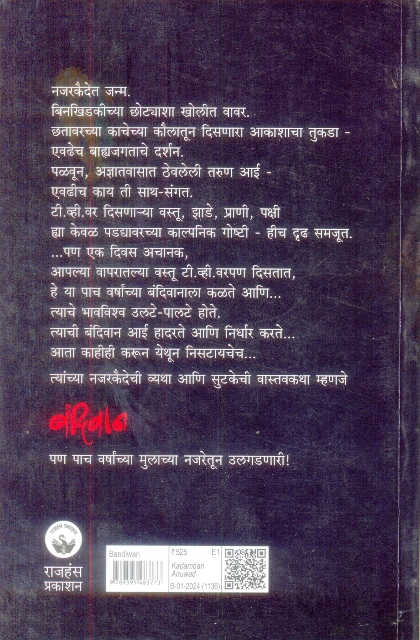 नजरकैदेत जन्म.
बिनखिडकीच्या छोट्याशा खोलीत वावर.
छतावरच्या काचेच्या कौलातून दिसणारा आकाशाचा तुकडा -
एवढेच बाह्यजगताचे दर्शन.
पळवून, अज्ञातवासात ठेवलेली तरुण आई -
एवढीच काय ती साथ-संगत.
टी.व्ही.वर दिसणाऱ्या वस्तू, झाडे, प्राणी, पक्षी
ह्या केवळ पडद्यावरच्या काल्पनिक गोष्टी - हीच दृढ समजूत.
...पण एक दिवस अचानक,
आपल्या वापरातल्या वस्तू टी.व्ही.वरपण दिसतात,
हे या पाच वर्षांच्या बंदिवानाला कळते आणि...
त्याचे भावविश्व उलटे-पालटे होते.
त्याची बंदिवान आई हादरते आणि निर्धार करते...
आता काहीही करून येथून निसटायचेच...
त्यांच्या नजरकैदेची व्यथा आणि सुटकेची वास्तवकथा म्हणजे
बंदिवान
पण पाच वर्षांच्या मुलाच्या नजरेतून उलगडणारी!
राजहंस
प्रकाशन
Bandiwan
9789395483773
₹525 E1
Kadambari
Anuwad
B-01-2024 (1136)